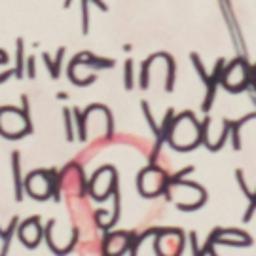 elive-in yo
d in your
long as y
you prove